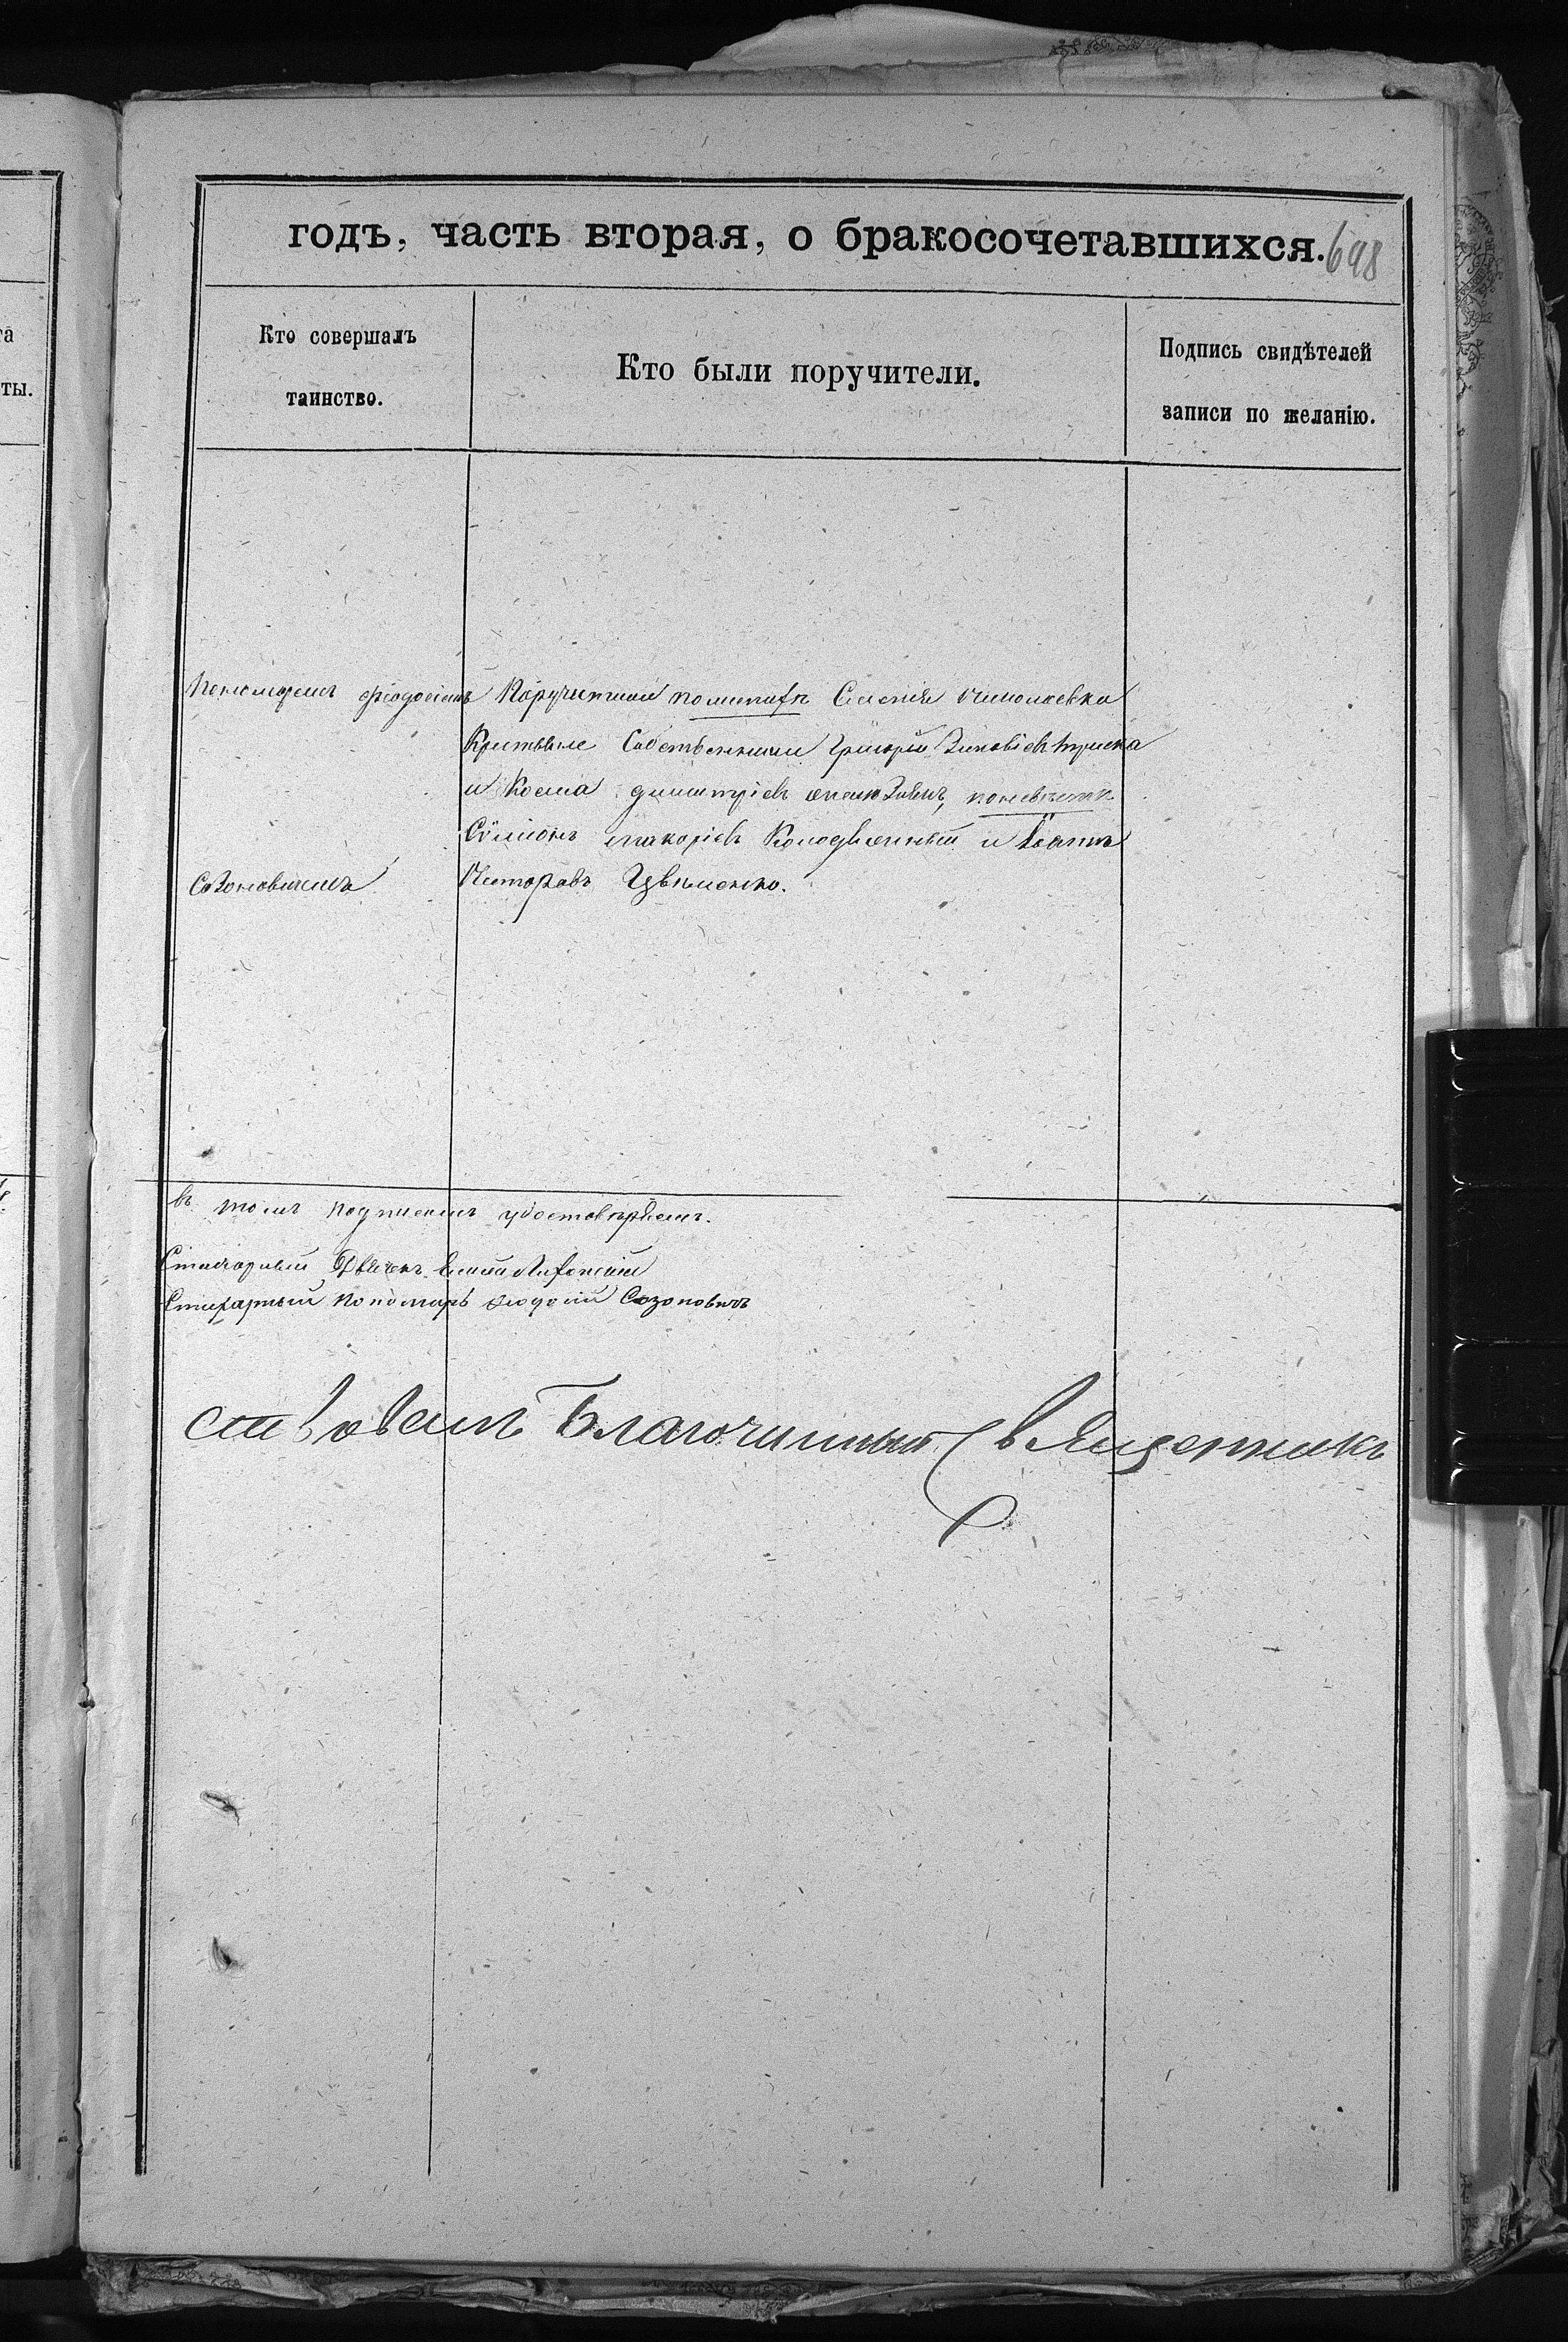 годъ, часть вторая, о бракосочетавшихся. 698
Кто совершалъ
таинство.
Кто были поручители.
Подпись свидѣтелей
записи по желанію.
та
ты.
Пономаремъ Ѳеодосіемъ
Созоновичемъ
Поручители по женихѣ
Крестьяне Собственники Григорій Зиновіевъ
и Косма Димитріевъ по невѣстѣ
Сѵмеонъ Макаріевъ Колодяжный и Іоаннъ
Несторовъ Цвѣленко.
въ томъ подписомъ удостовѣряемъ.
Стихарный Дьячекъ
Стихарный Пономарь Ѳеодосій Созоновичъ
Благочинный Священникъ